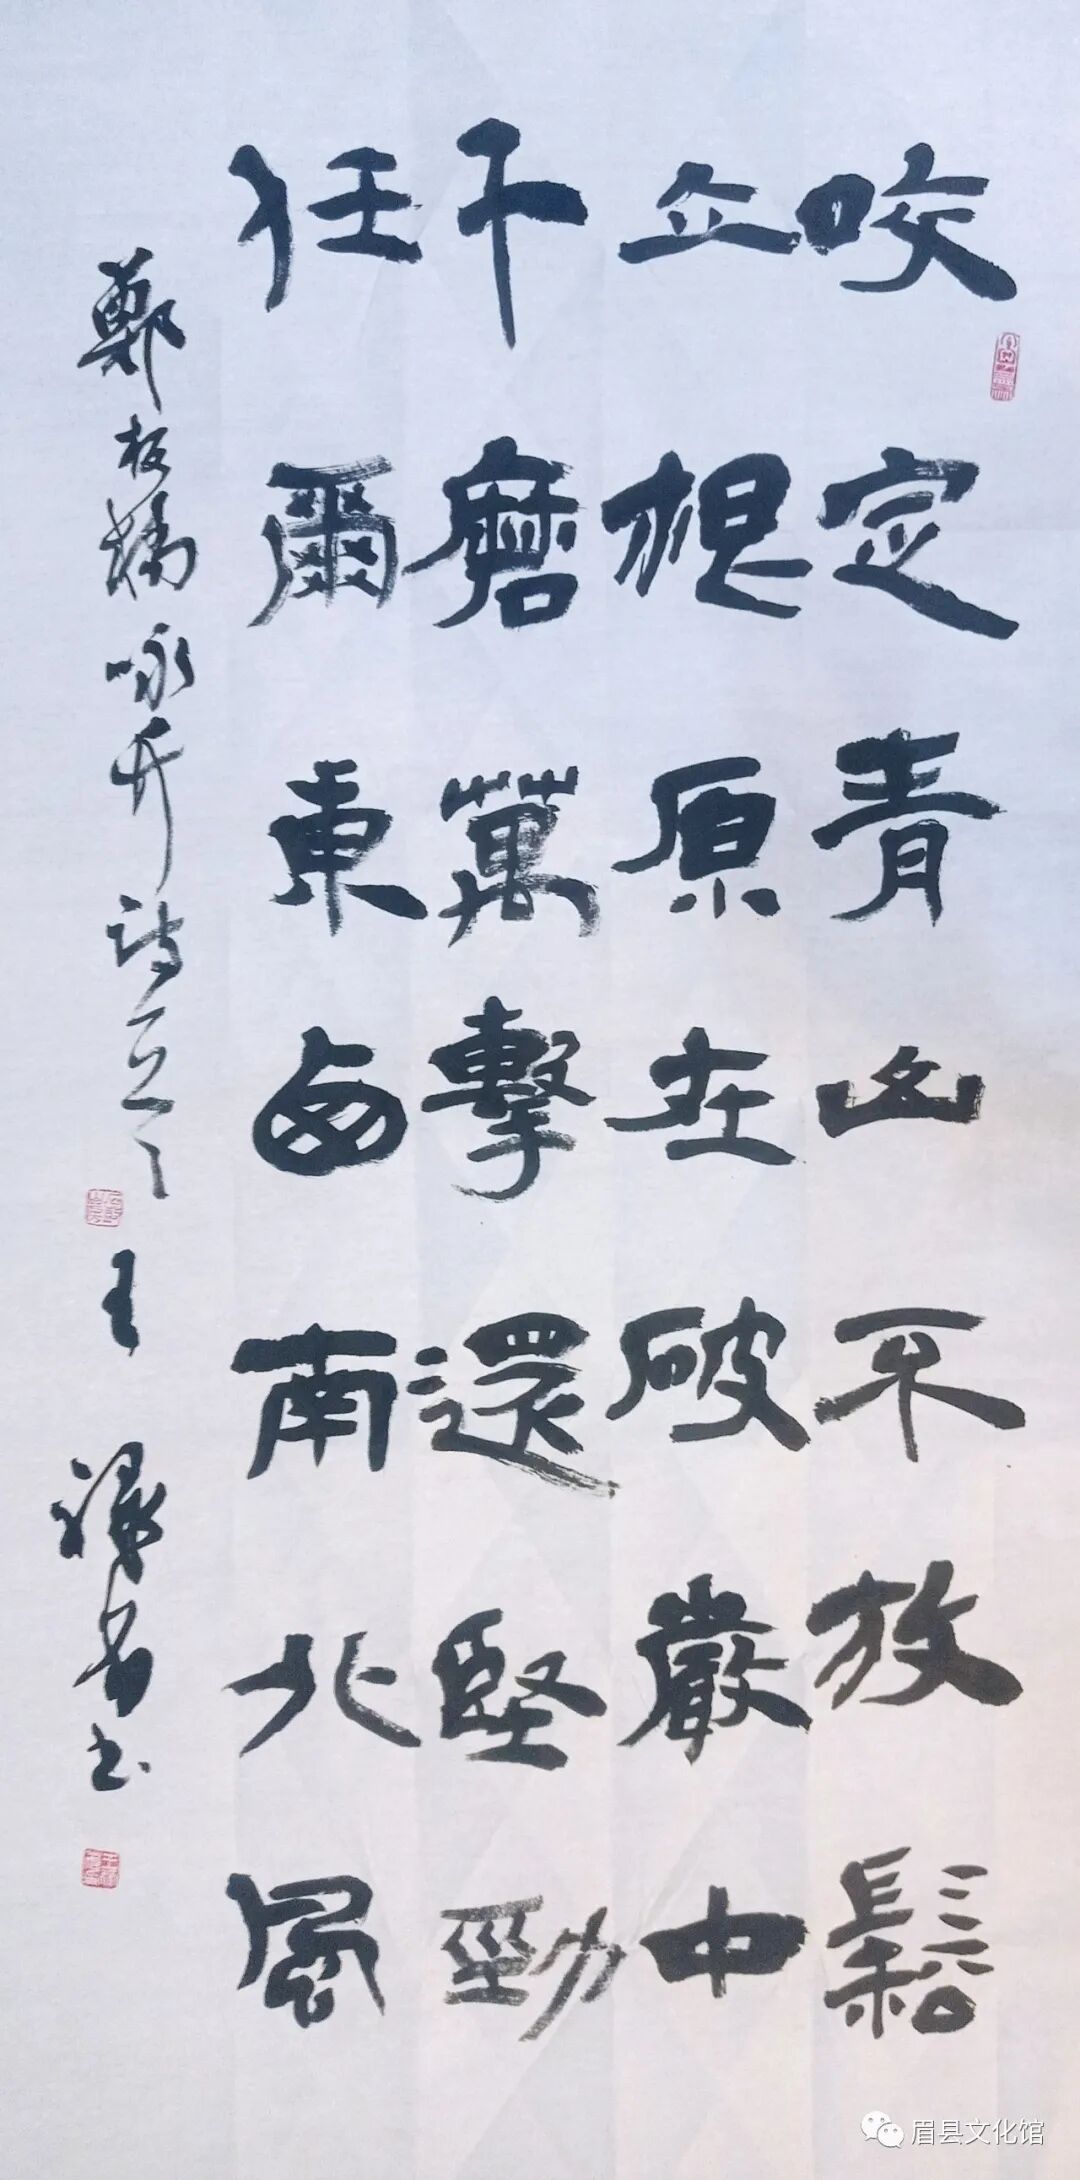 咬定青山不放鬆
立根原在破巖中
千磨萬擊還堅勁
任爾東西南北風
鄭板橋咏竹詩一首
王祿昌书
眉县文化馆